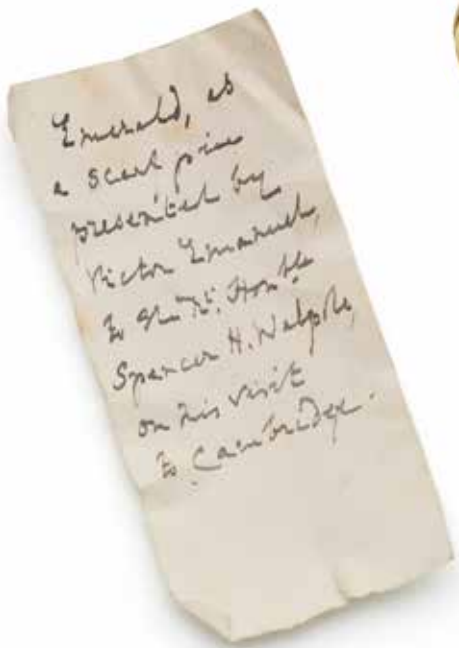 Emerald, as
a scarf pin
presented by
Victor Emanuel,
to the Rt. Honble
Spencer H. Walpole,
on his visit
to Cambridge.